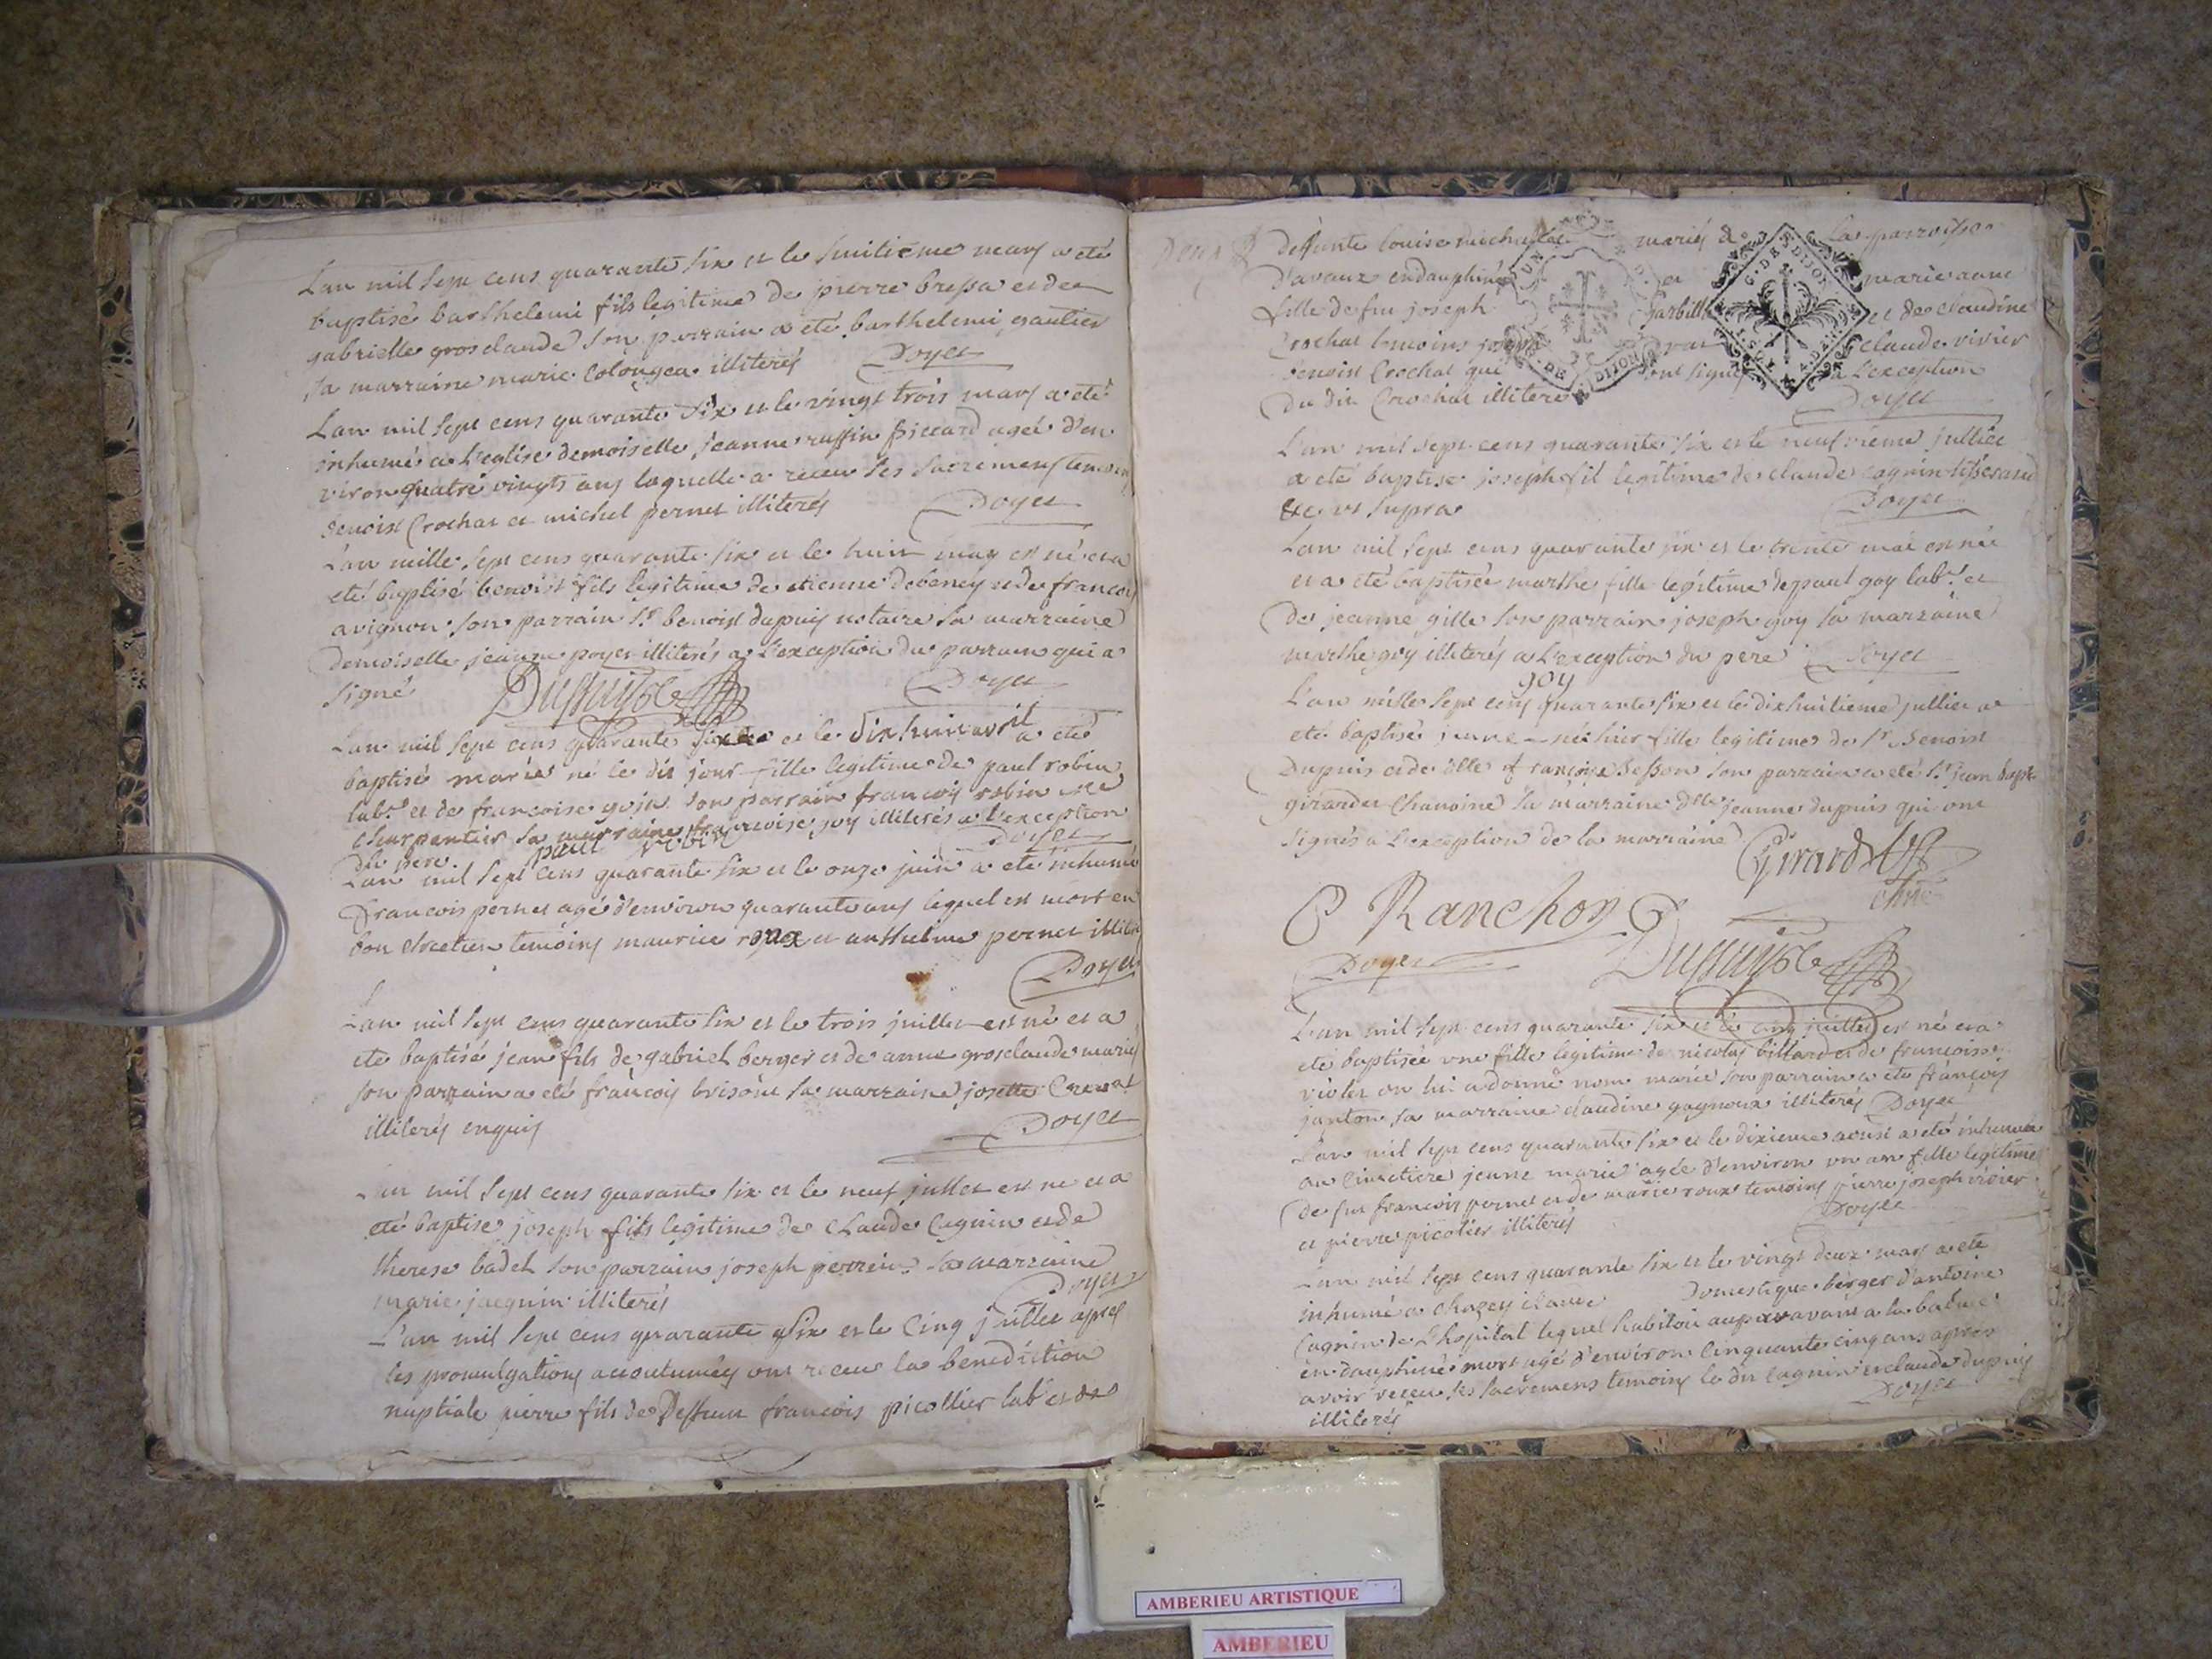 L'an mil sept cens quarante six et le huitieme mars a eté
baptisé barthelemi fils legitime de pierre bressa et de
gabrielle grosclaude son parrain a eté barthelemi gautier
sa marraine marie Colongea illiterés Doyet
L'an mil sept cens quarante six et le vingt trois mars a eté
inhumé a l'eglise demoiselle jeanne ruffin agée d'en
viron quatre vingts ans laquelle a receu ses sacremens temoins
benoist Crochat et michel pernet illiterés Doyet
L'an mille sept cens quarante six et le huit may est né et a
eté baptisé benoist fils legitime de etienne debeney et de françois
avignon son parrain Sr benoist dupuis notaire sa marraine
demoiselle jeanne poyet illiterés a l'exception du parrain qui a
signé Doyet
L'an mil sept cens quarante six et le dixhuit avril a eté
baptisé marie né le dit jour fille legitime de paul robin
labr et de francoise goy son parrain françois robin
charpentier sa marraine francoise goy illiterés a l'exception
du pere paul robin Doyet
L'an mil sept cens quarante six et le onze juin a eté inhumé
francois pernet agé d'environ quarante ans lequel est mort en
bon chretien temoins maurice roux et anthelme pernet illiterés
Doyet
L'an mil sept cens quarante six et le trois juillet est né et a
eté baptisé jean fils de gabriel berger et de anne grosclaude mariés
son parrain a eté françois brison sa marraine josette
illiterés enquis Doyet
L'an mil sept cens quarante six et le neuf jullet est né et a
eté baptise joseph fils legitime de claude Cagnin et de
therese badel son parrain joseph perrein sa marraine
marie jacquin illiterés Doyet
L'an mil sept cens quarante six et le Cinq juillet apres
les promulgations accoutumées ont receu la benediction
nuptiale pierre fils de deffunt francois picollier labr et de
deffunte louise mariés de la parroisse
D'avaux en dauphiné et marie anne
fille de feu joseph et de claudine
Crochat temoins claude vivier
benoist Crochat qui ont signé a l'exception
du dit Crochat illiteré Doyet
UN
DE DIJON
G. DE DIJON
L'an mil sept cens quarante six et le neufvieme julliet
a eté baptise joseph fil legitime de claude Cagnin tisserand
&c ut supra Doyet
L'an mil sept cens quarante six et le trente mai est née
et a eté baptisée marthe fille legitime de paul goy labr et
de jeanne gille son parrain joseph goy sa marraine
marthe goy illiterés a l'exception du pere Doyet
goy
L'an mille sept cens quarante six et le dixhuitieme julliet a
eté baptisé jeanne née hier fille legitime de Sr benoist
Dupuis et de dlle françoise besson son parrain a eté Sr jean bapt
girardet Chanoine sa marraine dlle jeanne dupuis qui ont
signés a l'exception de la marraine Girardet
Chne
Ranchon
Doyet
L'an mil sept cens quarante six et le cinq juillet est né et a
eté baptisée une fille legitime de nicolas billard et de francoise
violet on lui a donné nom marie son parrain a eté françois
janton sa marraine claudine gagneux illiterés Doyet
L'an mil sept cens quarante six et le dixieme aoust a eté inhumée
au Cimetiere jeane marie agée d'environ un an fille legitime
de feu francois pernet et de marie roux temoins pierre joseph vivier
et pierre picolier illiterés Doyet
L'an mil sept cens quarante six et le vingt deux mars a eté
inhumé a chazey claude Domestique berger d'antoine
Cagnin de L'hopital lequel habitoit auparavant a la balme
en dauphiné mort agé d'environ Cinquante cinq ans apres
avoir receu ses sacremens temoins le dit Cagnin et claude dupuis
illiterés Doyet
AMBERIEU ARTISTIQUE
AMBERIEU